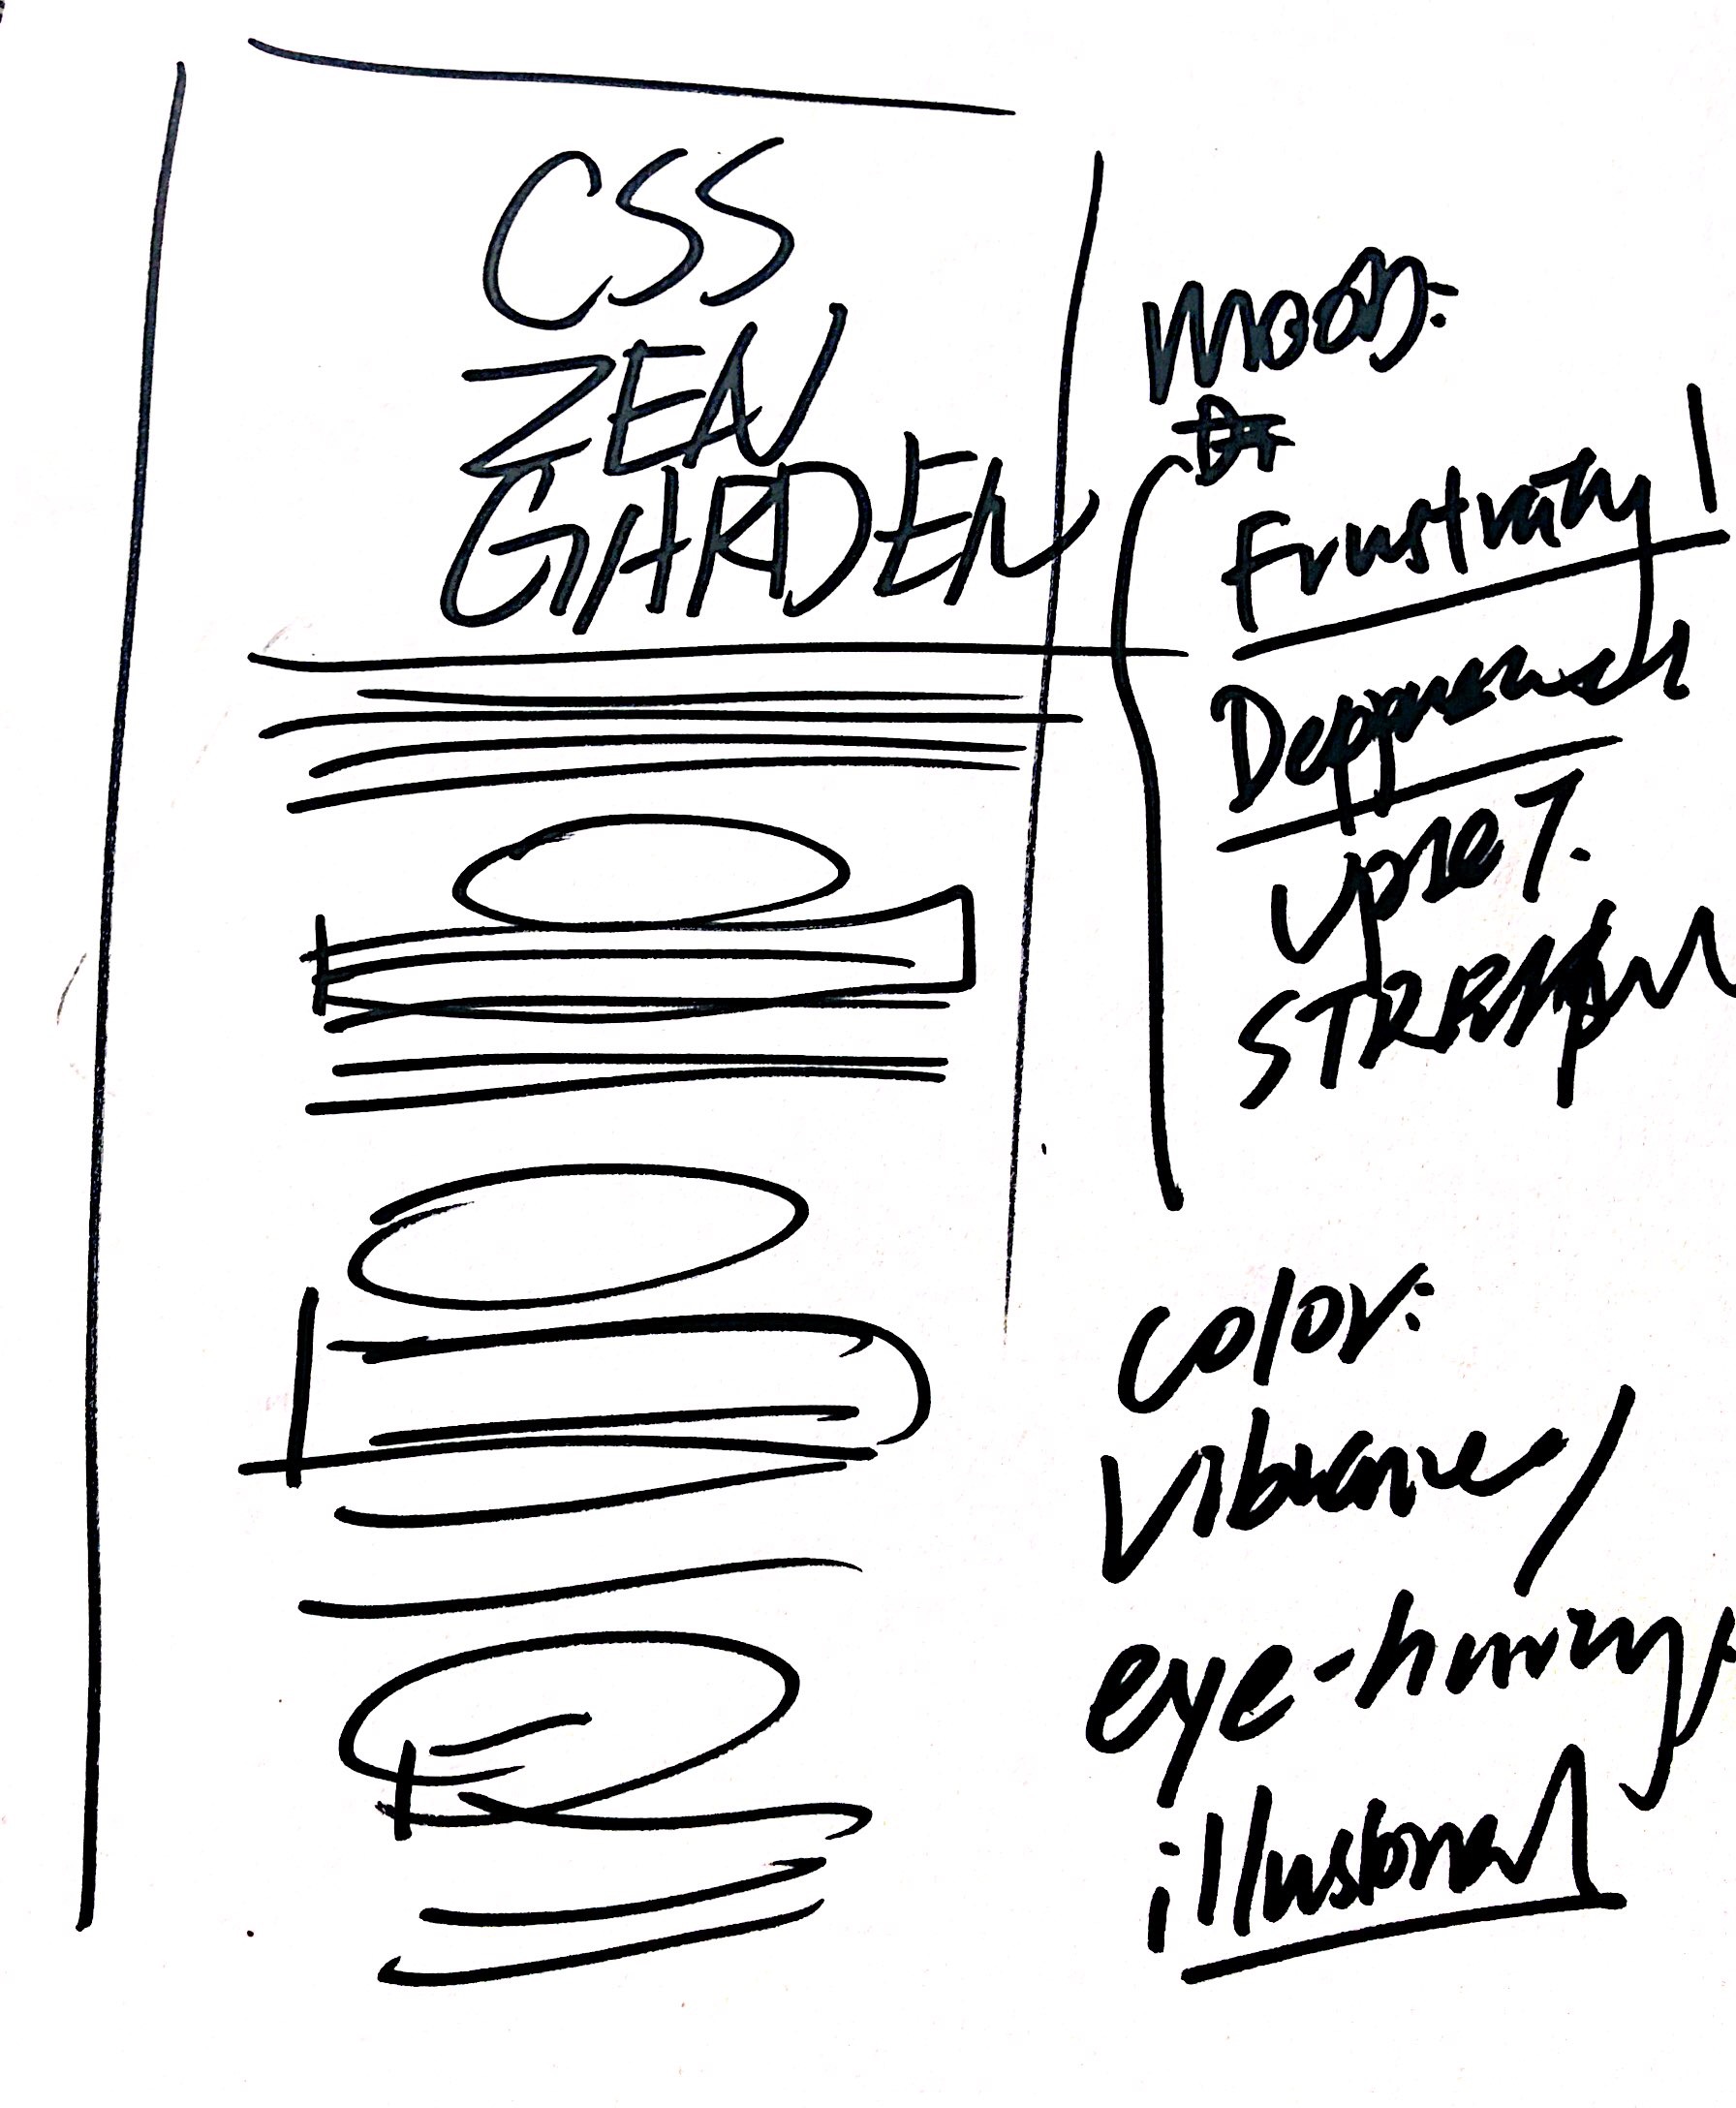 CSS
ZEN
GARDEN
Mood:
Frustraty
Deppressed
Upset.
STRESSful
Color:
Vibrance
eye-hurting
illusional